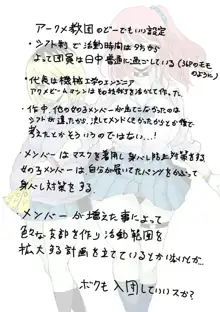 アークメ教団のどーでもいい設定
・シフト制で活動時間は夕方から
よって団員は日中普通に過ごしている(368のモモ
のように)
・代表は機械工学のエンジニア
アクメビームマシンは
・作中、他の女子メンバーが出てこなかったのは
シフトが違ったから、決してメンドくさかったとか後で
考えたとかそういうのではない…!
・メンバーはマスクを着用し身バレ防止対策をする
女の子メンバーは自分が履いてたパンツをかぶって
身バレ対策をする
・メンバーが増えた事によって
色々な支部を作り活動範囲を
拡大する計画を立てているとかいないとか…
ボクも入団していいスか?